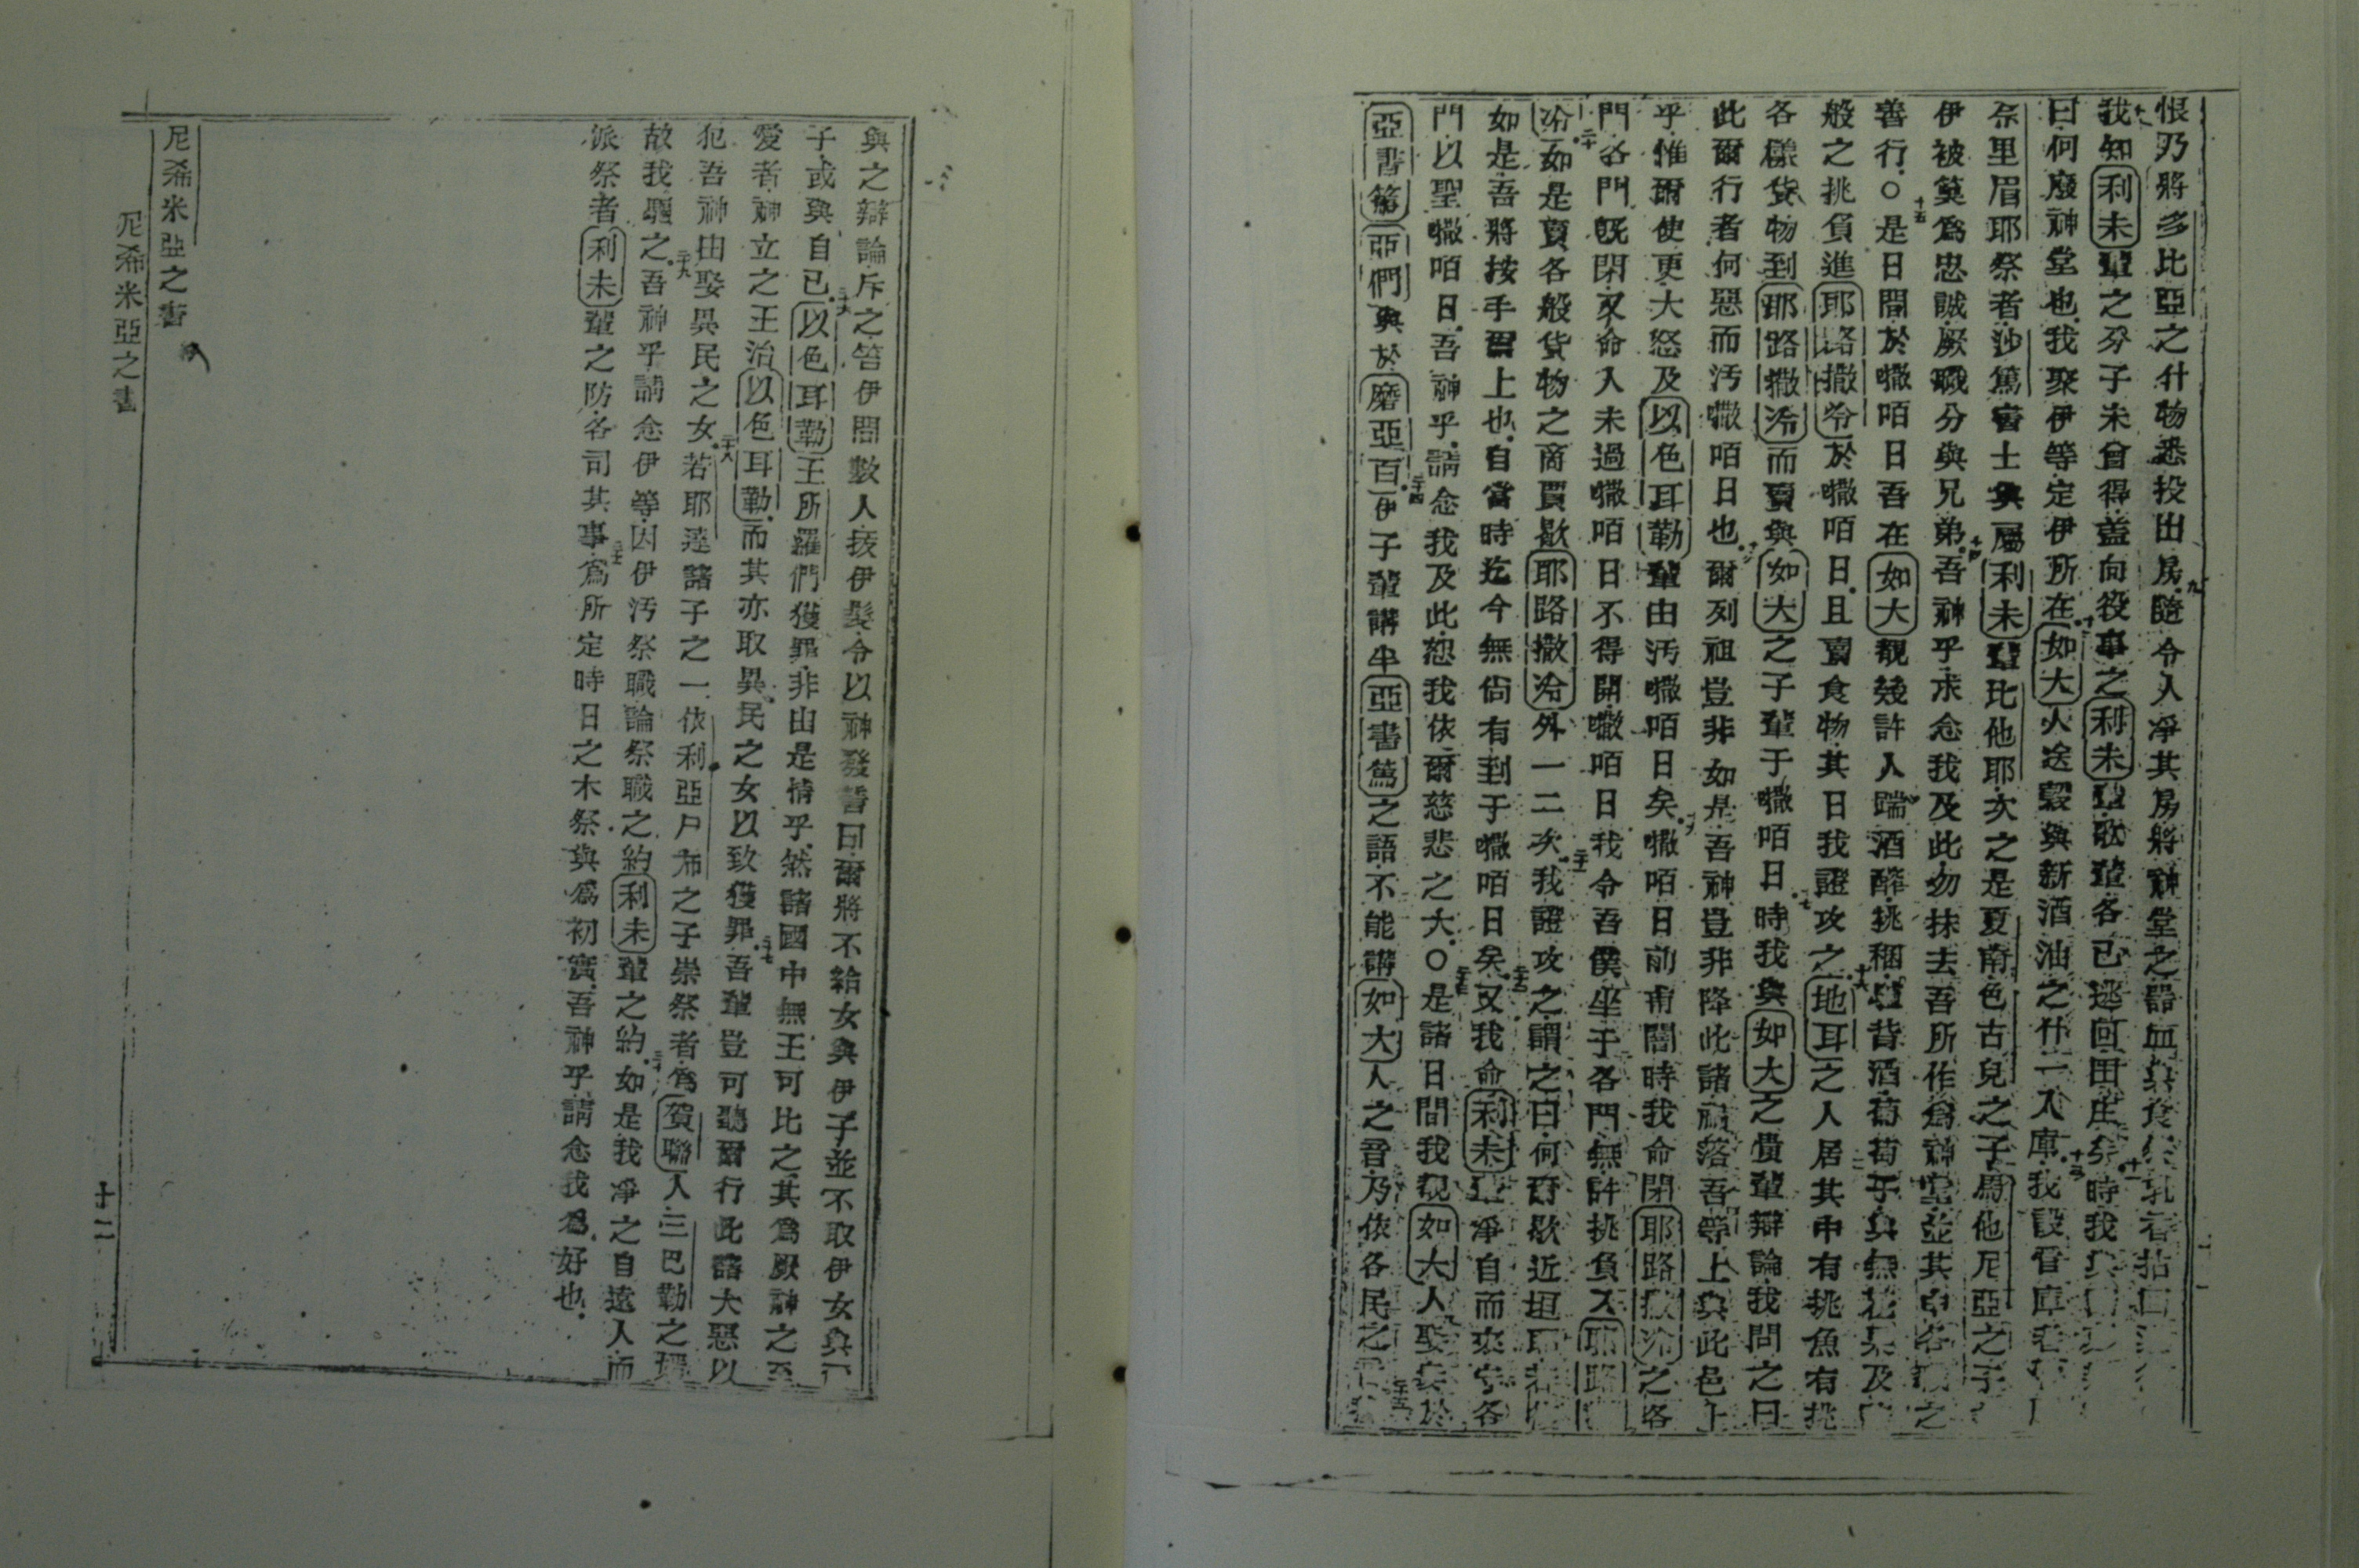 恨乃將多比亞之什物悉投出房.九隨令人凈其房將神堂之器皿與食祭乳香拈回
十我知利未輩之分子未曾得.蓋向役事之利未輩歌輩各已逃回田庄矣.十一時我與
曰何廢神堂也.我聚伊等定伊所在.十二如大人送穀與新酒油之什一入庫.十三我設管庫者
祭里眉耶祭者.沙篤書士與屬利未輩比他耶.次之是夏南色古兒之子馬他尼亞之子
伊被算爲忠誠.厥職分與兄弟.十四吾神乎求念我及此勿抹去吾所作爲神堂並其中各之
善行.○十五是日間於嚽咟日吾在如大覩幾許人踹酒醡.挑稇驢背酒葡萄子與無花果及
般之挑負進耶路撒冷於嚽咟日.且賣食物其日我證攻之.十六地耳之人居其中有挑魚有挑
各樣貨物到耶路撒冷而賣與如大之子輩于嚽咟日.十七時我與如大之貴輩辯論我問之曰
此爾行者何惡而汚嚽咟日也.十八爾列祖豈非如是吾神豈非降此諸禍落吾等上與此邑上
乎惟爾使更大怒及以色耳勒輩由汚嚽咟日矣.十九嚽咟日前甫闇時我命閉耶路撒冷之各
門.各門旣閉.又命人未過嚽咟日不得開.嚽咟日我令吾僕坐于各門無許挑負入耶路
冷.二十如是賣各般貨物之商賈歇耶路撒冷外一二次.二十一我證攻之謂之曰何爾歇近垣耶若
如是吾將按手爾上也.自當時迄今無尙有到于嚽咟日矣.二十二又我命利未輩凈自而來守各
門以聖嚽咟日.吾神乎.請念我及此.恕我依爾慈悲之大.○二十三是諸日間我覩如大人娶妻於
亞書篤亞們與於磨亞百.二十四伊子輩講半亞書篤之語不能講如大人之音乃依各民之
與之辯論斥之笞伊間數人.拔伊髮.令以神發誓曰爾將不給女與伊子並不取伊女與
子或與自己.二十六以色耳勒王所羅們獲罪非由是情乎.然諸國中無王可比之其爲厥神之至
愛者.神立之王治以色耳勒.而其亦取異民之女以致獲罪.二十七吾輩豈可聽爾行此諸大惡以
犯吾神由娶異民之女.二十八若耶達諸子之一依利亞尸布之子崇祭者.爲賀聯人三巴勒之壻
故我驅之.二十九吾神乎請念伊等因伊汚祭職論祭職之約利未輩之約.三十如是我凈之自遠人而
派祭者利未輩之防各司其事.三十一爲所定時日之木祭與爲初實.吾神乎請念我爲好也.
尼希米亞之書
尼希米亞之書
十二